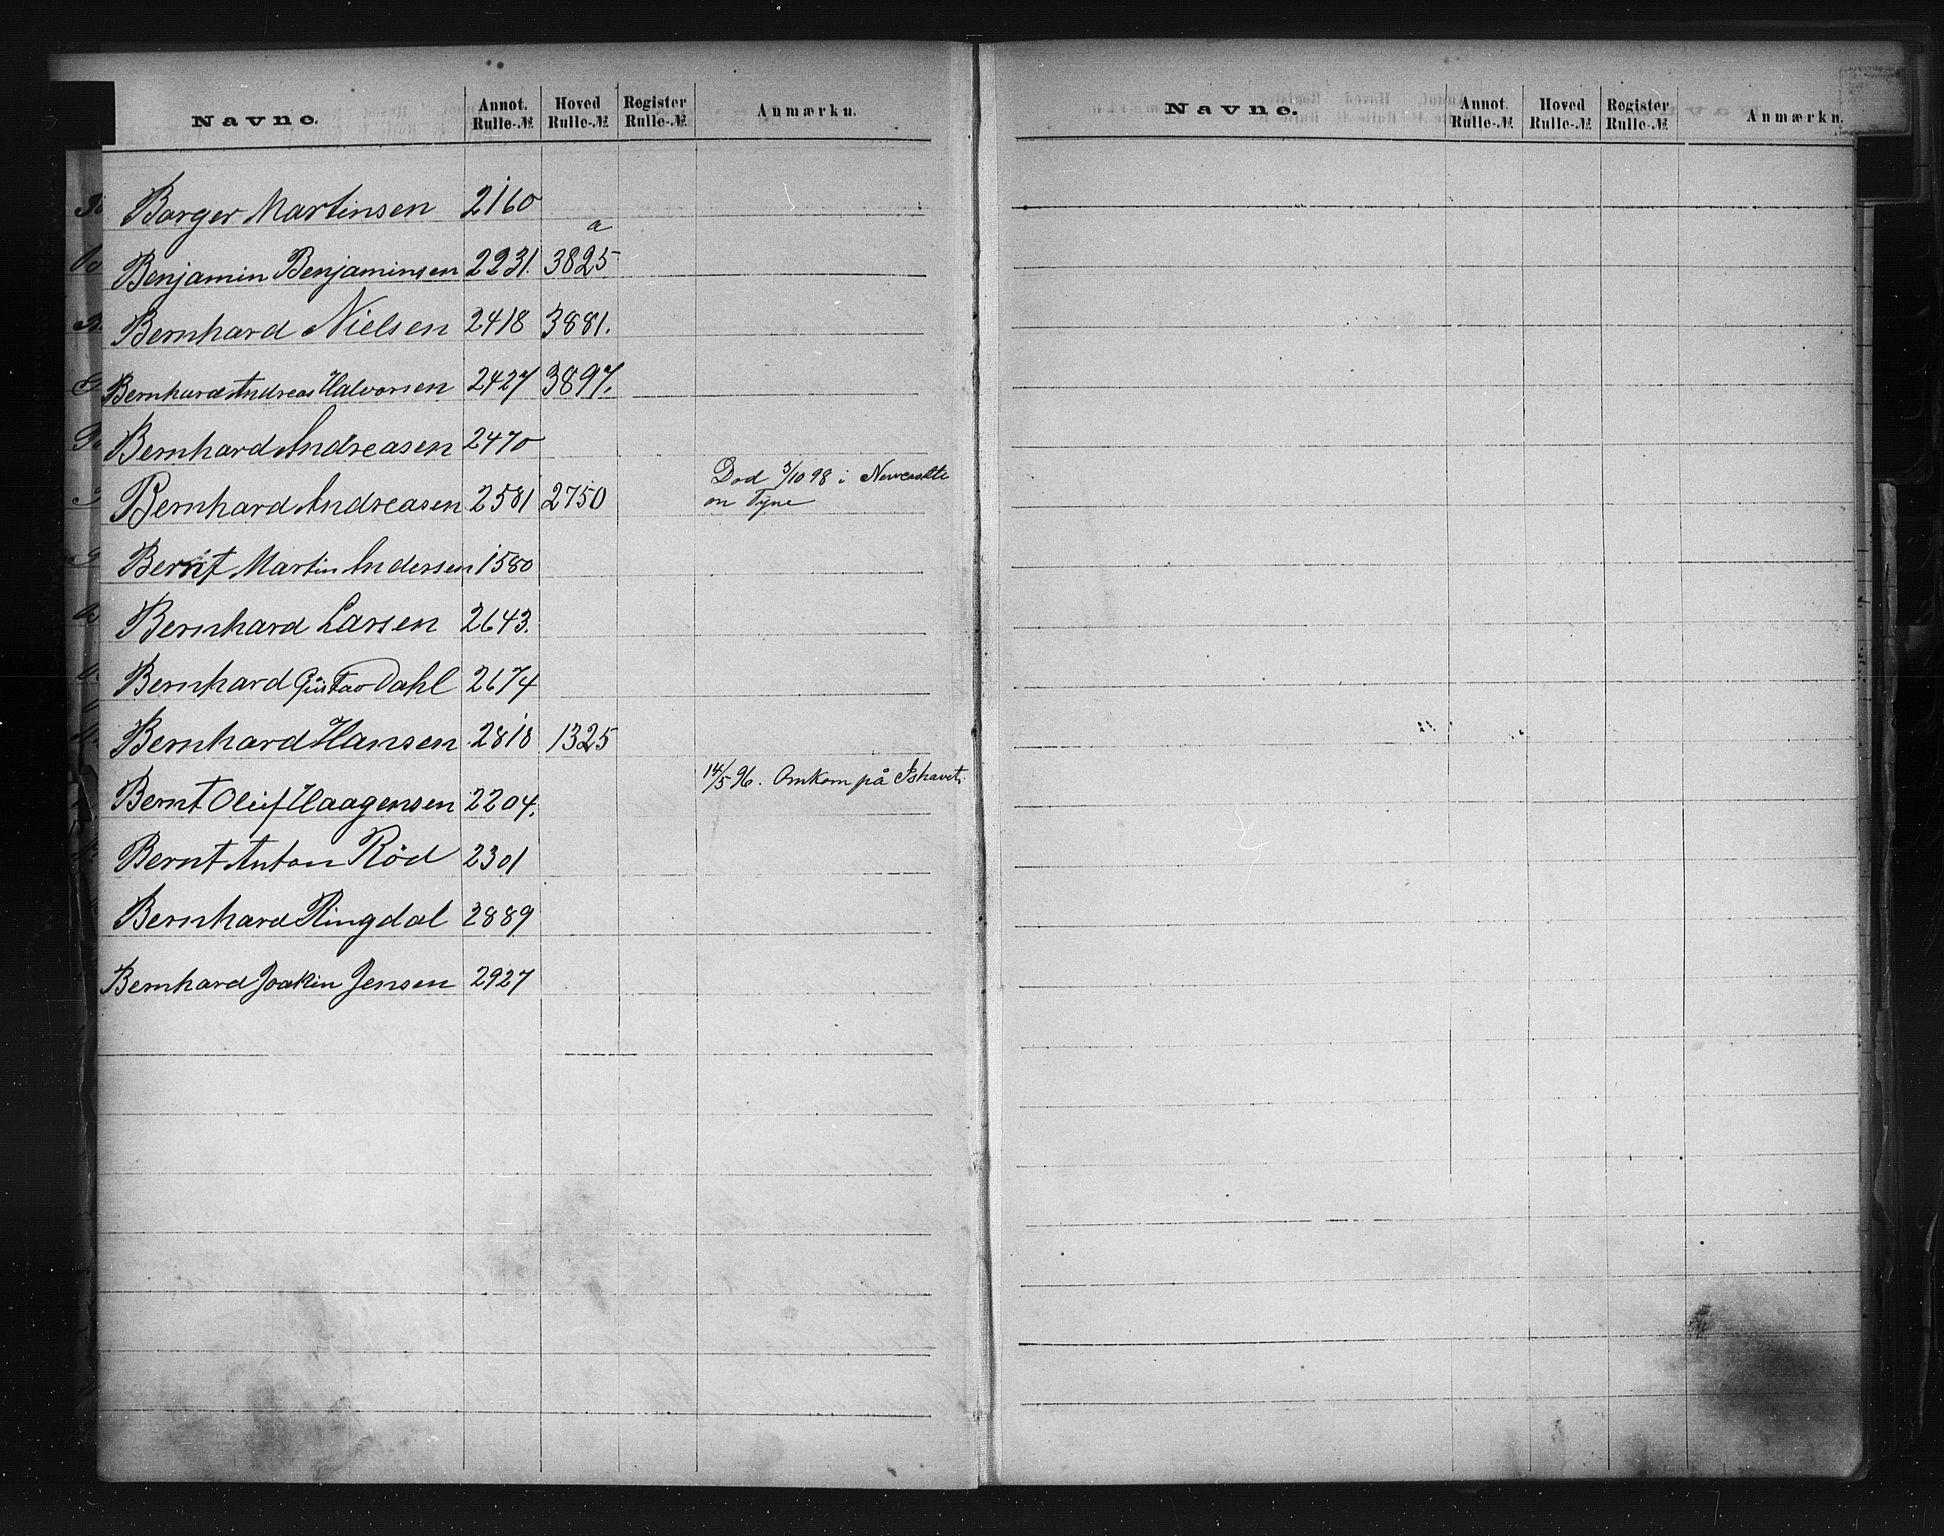 Navne. Annot. Rulle-№ Hoved Rulle-№ Register Rulle-№ Anmærkn.
Borger Martinsen 2160
Benjamin Benjaminsen 2231. 3825 a
Bernhard Nielsen 2418 3881.
Bernhard Andreas Halvorsen 2427 3897.
Bernhard Andreasen 2470
Bernhard Andreasen 2581 2750 Död 3/10 98 i Newcastle
on Tyne
Bernt Martin Andersen 1580
Bernhard Larsen 2643.
Bernhard Gustav Dahl 2674
Bernhard Hansen 2818 1325
Bernt Oluf Haagensen 2204. 14/5 96. Omkom på Ishavet.
Bernt Anton Rød 2301
Bernhard Ringdal 2889
Bernhard Joakim Jensen 2927
Navne. Annot. Rulle-№ Hoved Rulle-№ Register Rulle-№ Anmærkn.